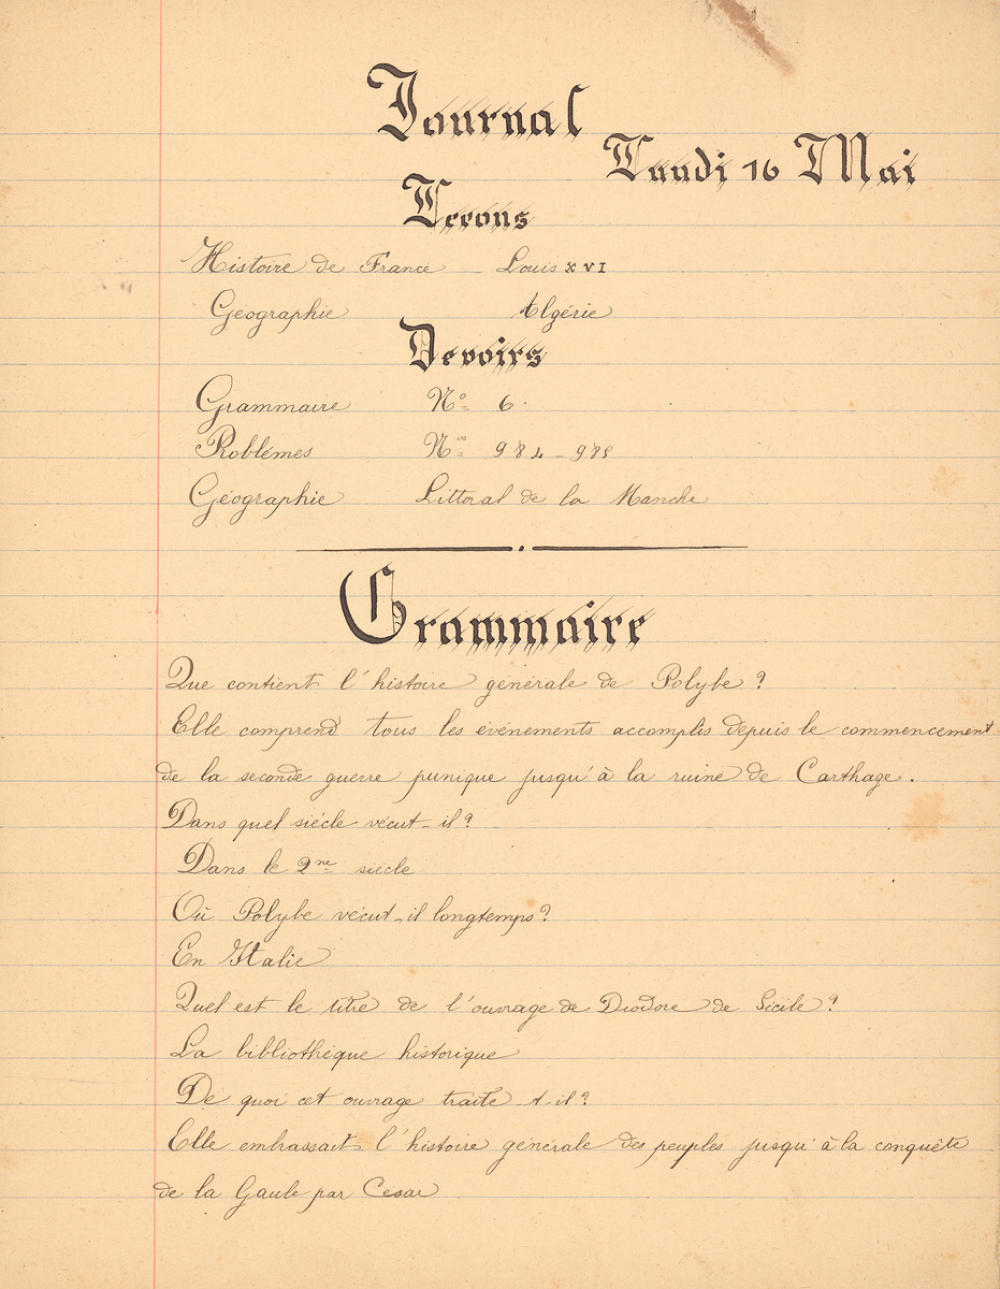 Journal
Lundi 16 Mai
Leçons
Histoire de France Louis XVI
Géographie Algérie
Devoirs
Grammaire Nº 6.
Problèmes Nos 984 - 985
Géographie Littoral de la Manche
Grammaire
Que contient l'histoire générale de Polybe ?
Elle comprend tous les événements accomplis depuis le commencement
de la seconde guerre punique jusqu'à la ruine de Carthage.
Dans quel siècle vécut-il ?
Dans le 2me siècle
Où Polybe vécut-il longtemps ?
En Italie
Quel est le titre de l'ouvrage de Diodore de Sicile ?
La bibliothèque historique
De quoi cet ouvrage traite t-il ?
Elle embrassait l'histoire générale des peuples jusqu'à la conquête
de la Gaule par César